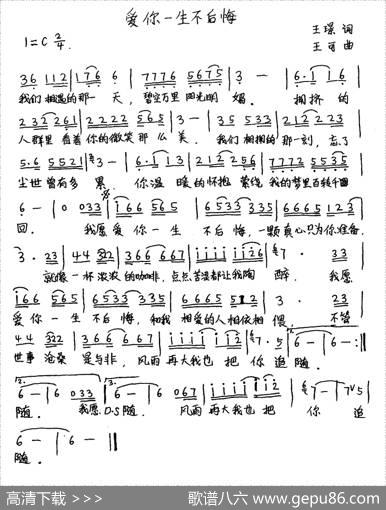 爱你一生不后悔
1=C 2/4.
王琛 词
王可 曲
36 112 | 176 6 | 7776 5675 | 3 — | 6·1 16
我们相遇的那一天，碧空万里阳光明媚．拥挤的
232 261 | 2222 565 | 3 — | 35 533 | 212 223
人群里看着你的微笑那么美．我们相拥的那一刻，忘了
5·6 5521 | 3 — | 6·1 13 | 212 256 | 7772 5535
尘世曾有多累．你温暖的怀抱萦绕我的梦里百转千回
6 — | 0 033 | 166 565 | 6533 335 | 6665 123
回．我愿爱你一生不后悔，一颗真心只为你准备．
3·23 | 44 322 | 366 667 | 1111 1126 | 7·33
就像一杯浓浓的咖啡，点点苦涩都让我陶醉．我愿
166 565 | 6533 335 | 6665 512 | 3·23
爱你一生不后悔，和我相爱的人相依相偎 不管
44 322 | 366 667 | 1111 112 | 7·5 | 6 — | 6 — :||
世事沧桑是与非，风雨再大我也把你追随．
6 — | 6 033 | 6 — | 6 067 | 1111 112 | 7 — | 7 5 |
随．我愿 D.S 随．风雨再大我也把你追
6 — | 6 — ||
随．
高清下载 >>>
歌谱八六 www.gepu86.com